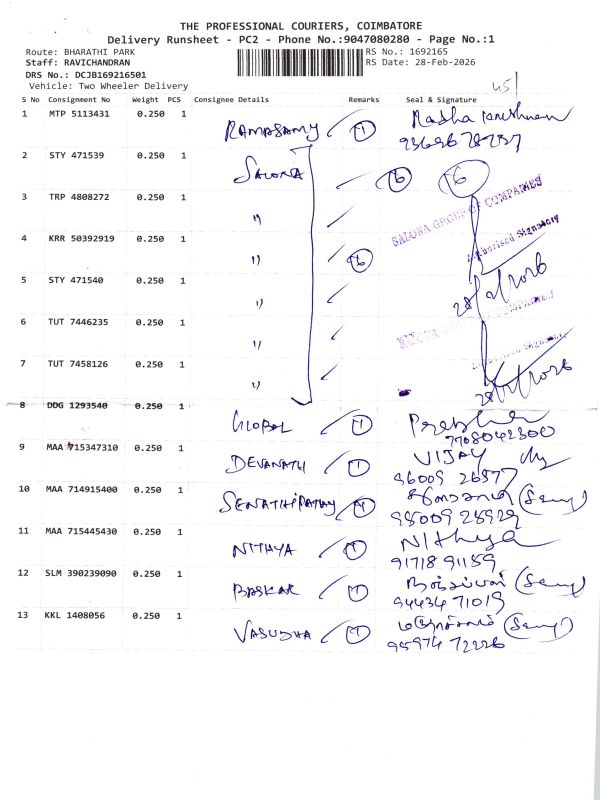 THE PROFESSIONAL COURIERS, COIMBATORE
Delivery Runsheet - PC2 - Phone No.:9047080280 - Page No.:1
Route: BHARATHI PARK RS No.: 1692165
Staff: RAVICHANDRAN RS Date: 28-Feb-2026
DRS No.: DCJB169216501
Vehicle: Two Wheeler Delivery 45
S No Consignment No Weight PCS Consignee Details Remarks Seal & Signature
1 MTP 5113431 0.250 1 RAMASAMY 1 Radha
2 STY 471539 0.250 1 SALONA 6 6
3 TRP 4808272 0.250 1 " SALONA GROUP OF COMPANIES
4 KRR 50392919 0.250 1 " 6 Authorised Signatory
5 STY 471540 0.250 1 " 28/2/2026
6 TUT 7446235 0.250 1 "
7 TUT 7458126 0.250 1 "
8 DDG 1293540 0.250 1 GLOBAL 1
7708042300
9 MAA 715347310 0.250 1 DEVANATH 1 VIJAY
96009 26577
10 MAA 714915400 0.250 1 SENATHIPATHY 1 (Samy)
98009 28929
11 MAA 715445430 0.250 1 NITHYA 1 Nithya
91718 91159
12 SLM 390239090 0.250 1 BASKAR 1 (Samy)
94434 71019
13 KKL 1408056 0.250 1 VASUDHA 1 (Samy)
95974 72226